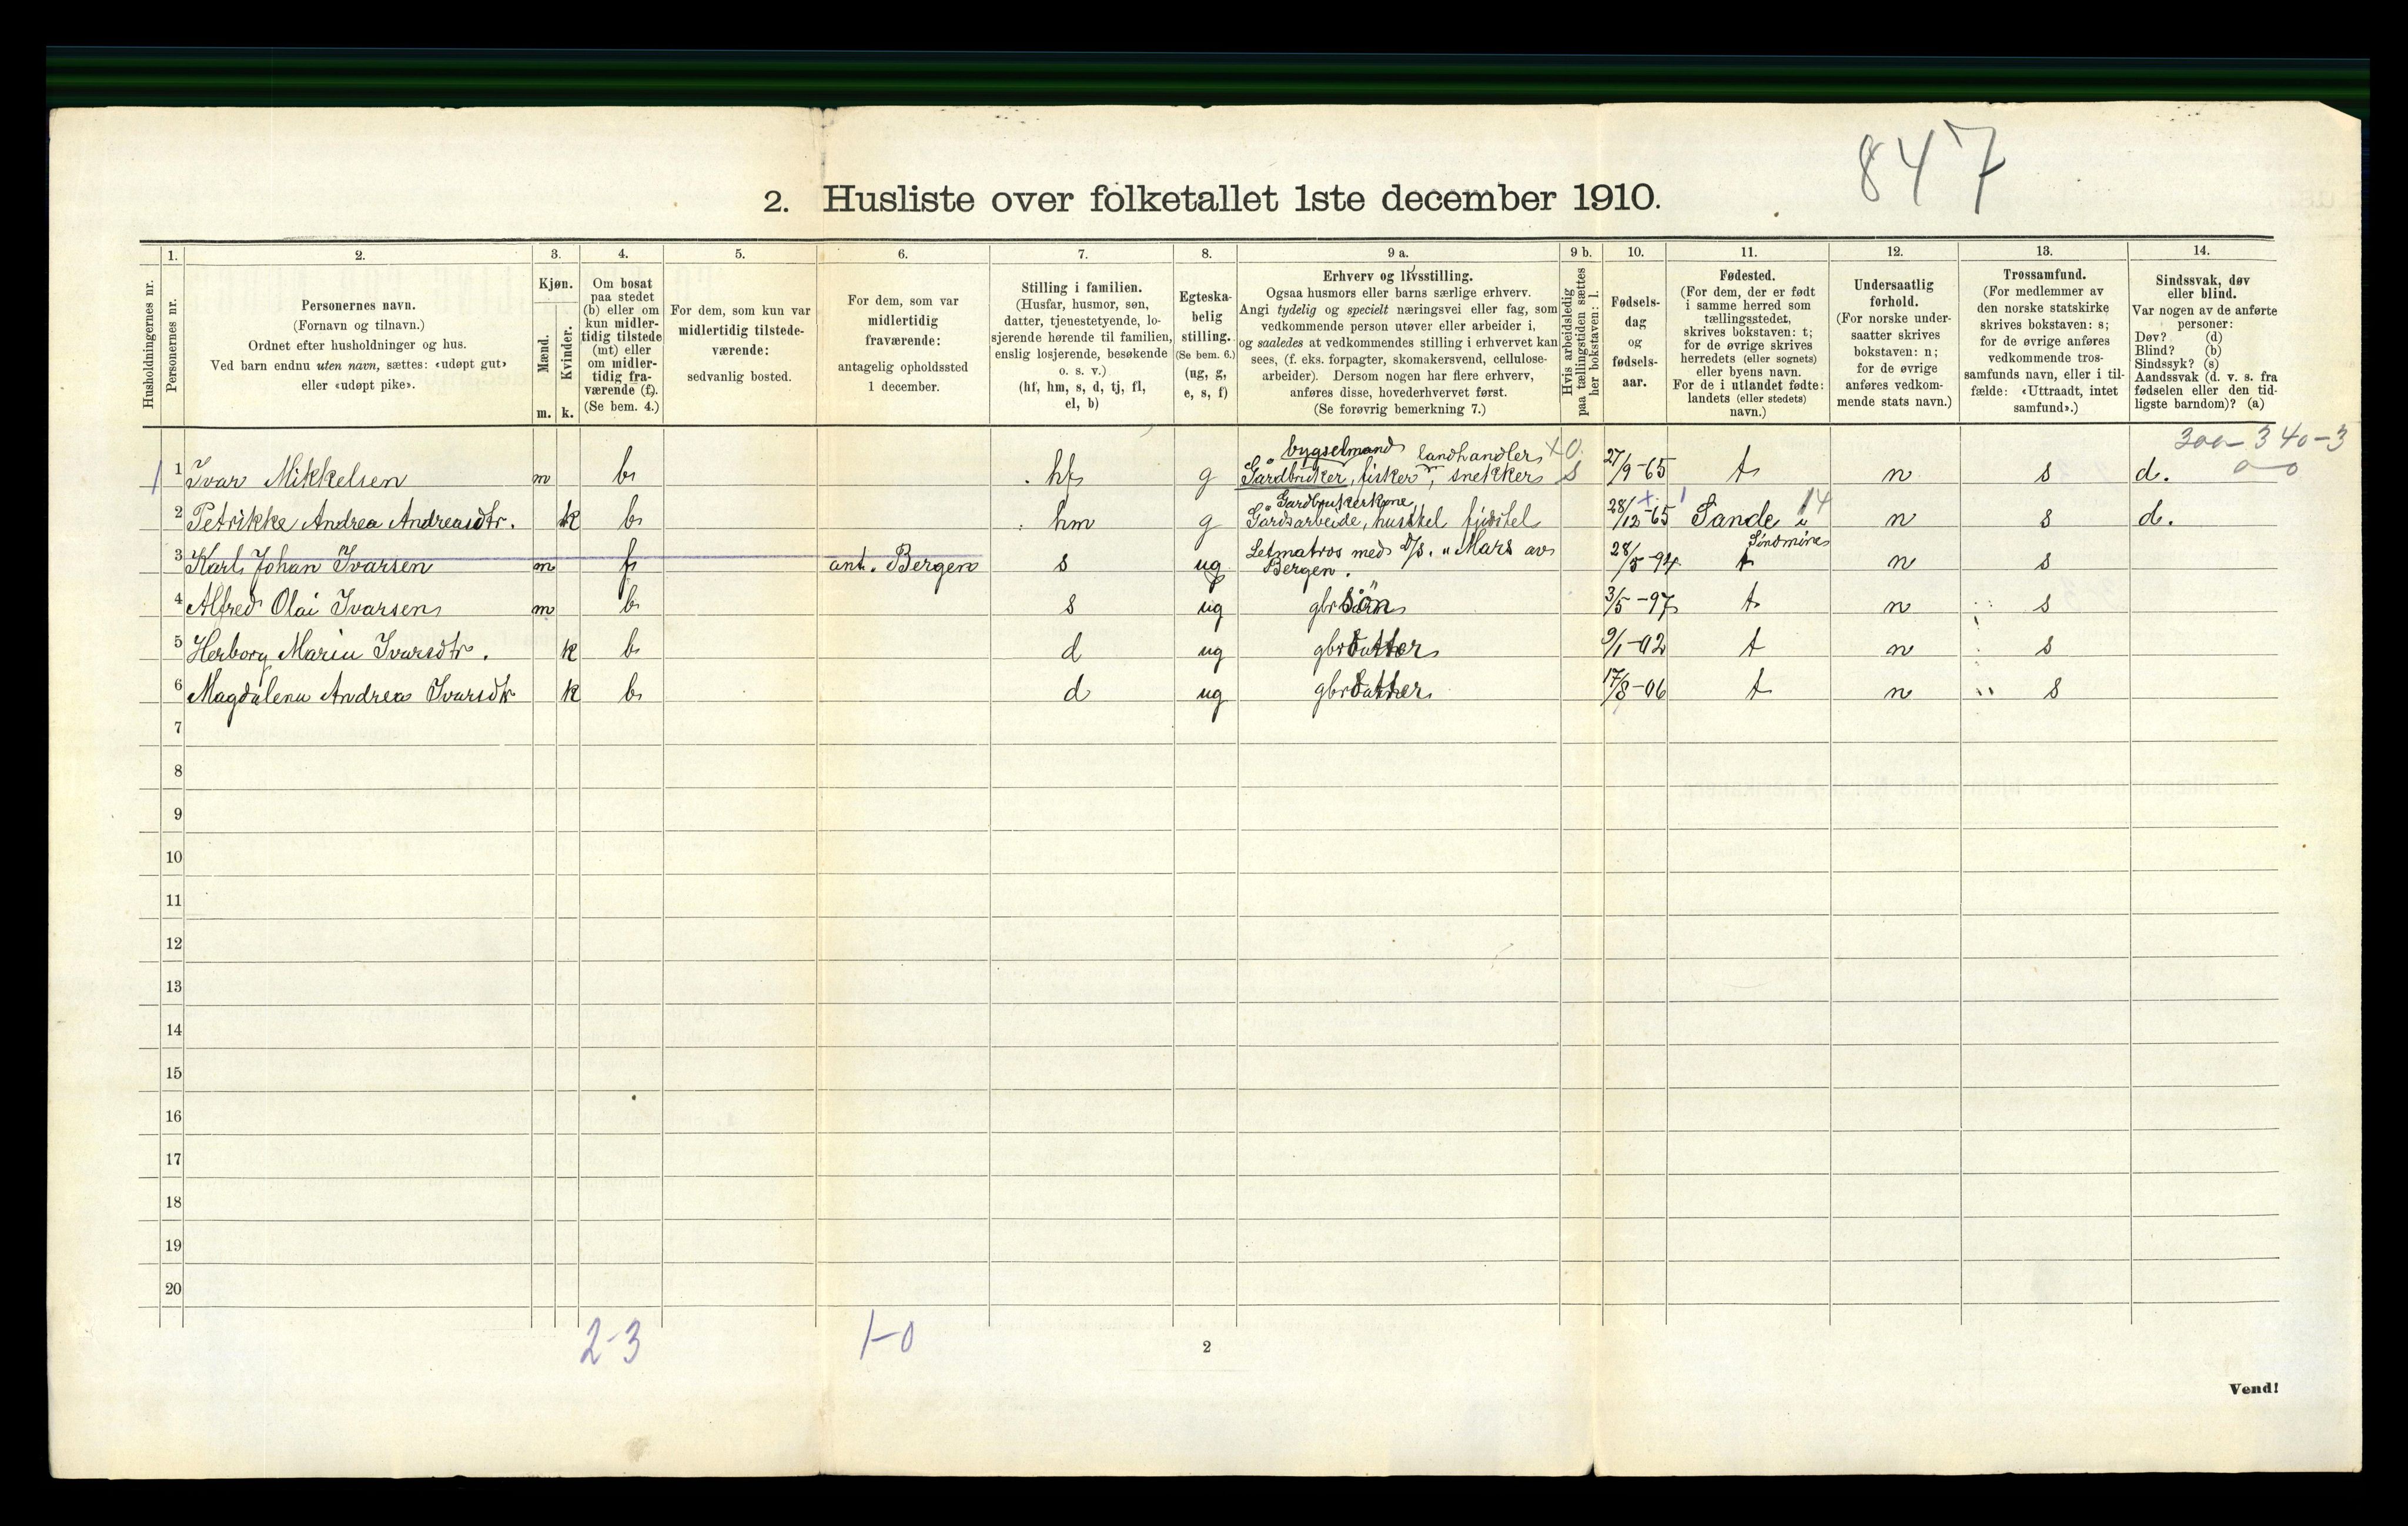 847
2. Husliste over folketallet 1ste december 1910.
Husholdningernes nr.
1.
Personernes nr.
2.
Personernes navn.
(Fornavn og tilnavn.)
Ordnet efter husholdninger og hus.
Ved barn endnu uten navn, sættes: «udøpt gut»
eller «udøpt pike».
3.
Kjøn.
Mænd.
Kvinder.
m. k.
4.
Om bosat
paa stedet
(b) eller om
kun midler-
tidig tilstede
(mt) eller
om midler-
tidig fra-
værende (f).
(Se bem. 4.)
5.
For dem, som kun var
midlertidig tilstede-
værende:
sedvanlig bosted.
6.
For dem, som var
midlertidig
fraværende:
antagelig opholdssted
1 december.
7.
Stilling i familien.
(Husfar, husmor, søn,
datter, tjenestetyende, lo-
sjerende hørende til familien,
enslig losjerende, besøkende
o. s. v.)
(hf, hm, s, d, tj, fl,
el, b)
8.
Egteska-
belig
stilling.
(Se bem. 6.)
(ug, g,
e, s, f)
9 a.
Erhverv og livsstilling.
Ogsaa husmors eller barns særlige erhverv.
Angi tydelig og specielt næringsvei eller fag, som
vedkommende person utøver eller arbeider i,
og saaledes at vedkommendes stilling i erhvervet kan
sees, (f. eks. forpagter, skomakersvend, cellulose-
arbeider). Dersom nogen har flere erhverv,
anføres disse, hovederhvervet først.
(Se forøvrig bemerkning 7.)
9 b.
Hvis arbeidsledig
paa tællingstiden sættes
her bokstaven: l.
10.
Fødsels-
dag
og
fødsels-
aar.
11.
Fødested.
(For dem, der er født
i samme herred som
tællingsstedet,
skrives bokstaven: t;
for de øvrige skrives
herredets (eller sognets)
eller byens navn.
For de i utlandet fødte:
landets (eller stedets)
navn.)
12.
Undersaatlig
forhold.
(For norske under-
saatter skrives
bokstaven: n;
for de øvrige
anføres vedkom-
mende stats navn.)
13.
Trossamfund.
(For medlemmer av
den norske statskirke
skrives bokstaven: s;
for de øvrige anføres
vedkommende tros-
samfunds navn, eller i til-
fælde: «Uttraadt, intet
samfund».)
14.
Sindssvak, døv
eller blind.
Var nogen av de anførte
personer:
Døv? (d)
Blind? (b)
Sindssyk? (s)
Aandssvak (d. v. s. fra
fødselen eller den tid-
ligste barndom)? (a)
300-340-3
0-0
bygselmand landhandler x0.
1 1 Ivar Mikkelsen m b hf g Gårdbruker, fisker, snekker s 27/9-65 t n s d.
Gardbrukerkone x 1 14
2 Petrikke Andrea Andreasdtr. k b hm g Gårdsarbeide, husstel fjøsstel 28/12-65 Sande i n s d.
Søndmøre
3 Karl Johan Ivarsen m f ant. Bergen s ug Letmatros med D/S. "Mars av 28/5-94 t n s
Bergen.
4 Alfred Olai Ivarsen m b s ug gbr søn 3/5-97 t n s
5 Herborg Marie Ivarsdtr. k b d ug gbr datter 9/1-02 t n s
6 Magdalena Andrea Ivarsdtr k b d ug gbr datter 17/8-06 t n s
7
8
9
10
11
12
13
14
15
16
17
18
19
20
2-3
1-0
2
Vend!